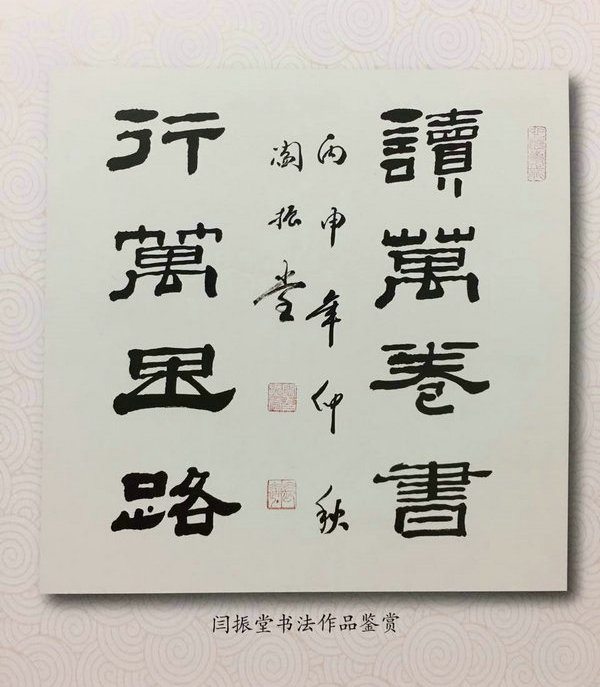 讀萬卷書
丙申年仲秋
閻振堂
行萬里路
闫振堂书法作品鉴赏